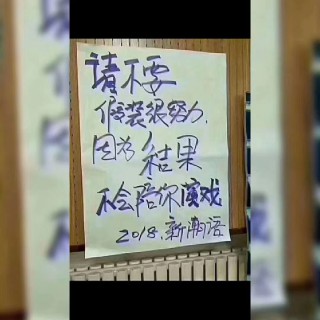 请不要
假装很努力.
因为结果
不会陪你演戏
2018.新潮语